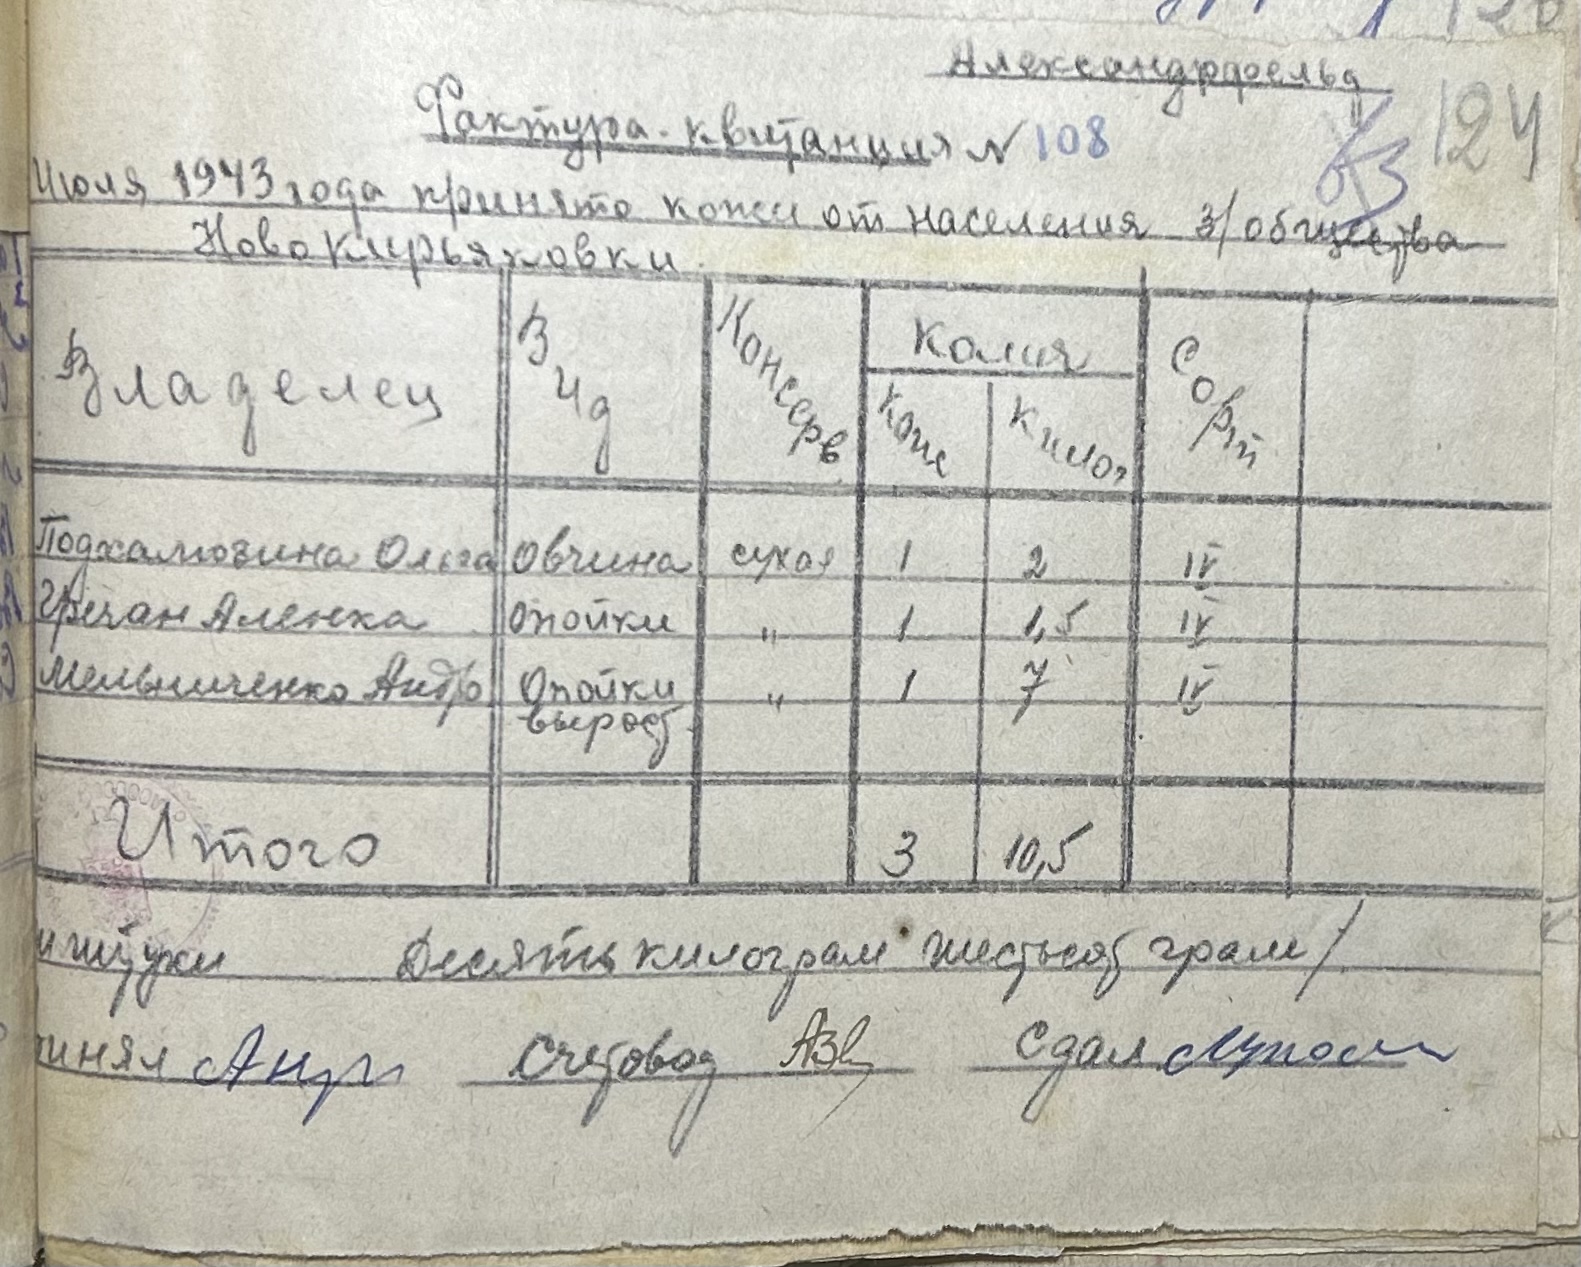 Александрфельд
124
Фактура-квитанция № 108
Июля 1943 года принято кожи от населения з/общества
Новокирьяковки.
Владелец Вид Консерв Колич Сорт
Кож Килог
Подхалюзина Ольга Овчина сухая 1 2 IV
Гречан Аленка Опойки " 1 1,5 IV
Мельниченко Андр Опойки " 1 7 IV
вырост
Итого 3 10,5
и штуки Десять килограм шестьсот грам/
инял Счетовод Сдал